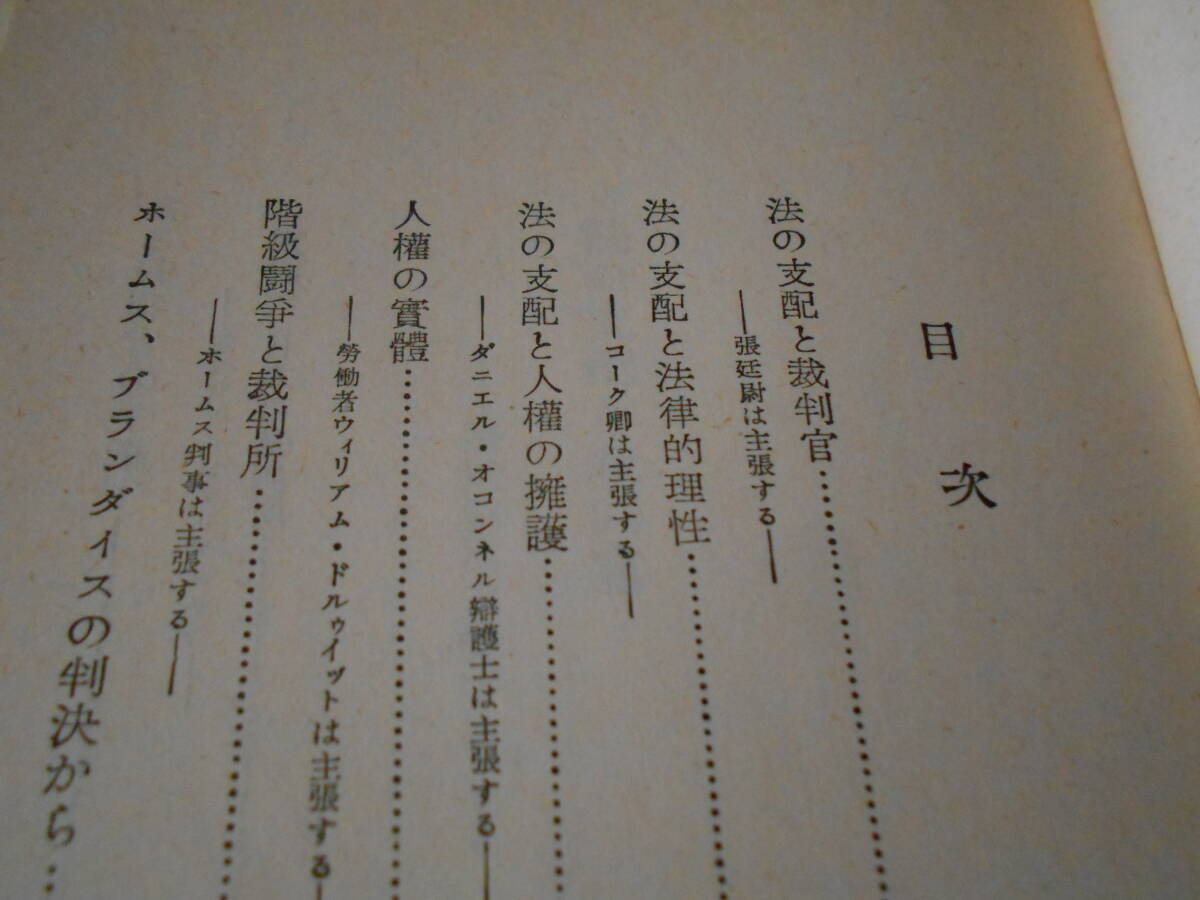 目次
法の支配と裁判官…………
——張廷尉は主張する——
法の支配と法律的理性…………
——コーク卿は主張する——
法の支配と人權の擁護…………
——ダニエル・オコンネル辯護士は主張する——
人權の實體…………
——勞働者ウィリアム・ドルゥイットは主張する——
階級鬪爭と裁判所…………
——ホームス判事は主張する——
ホームス、ブランダイスの判決から…